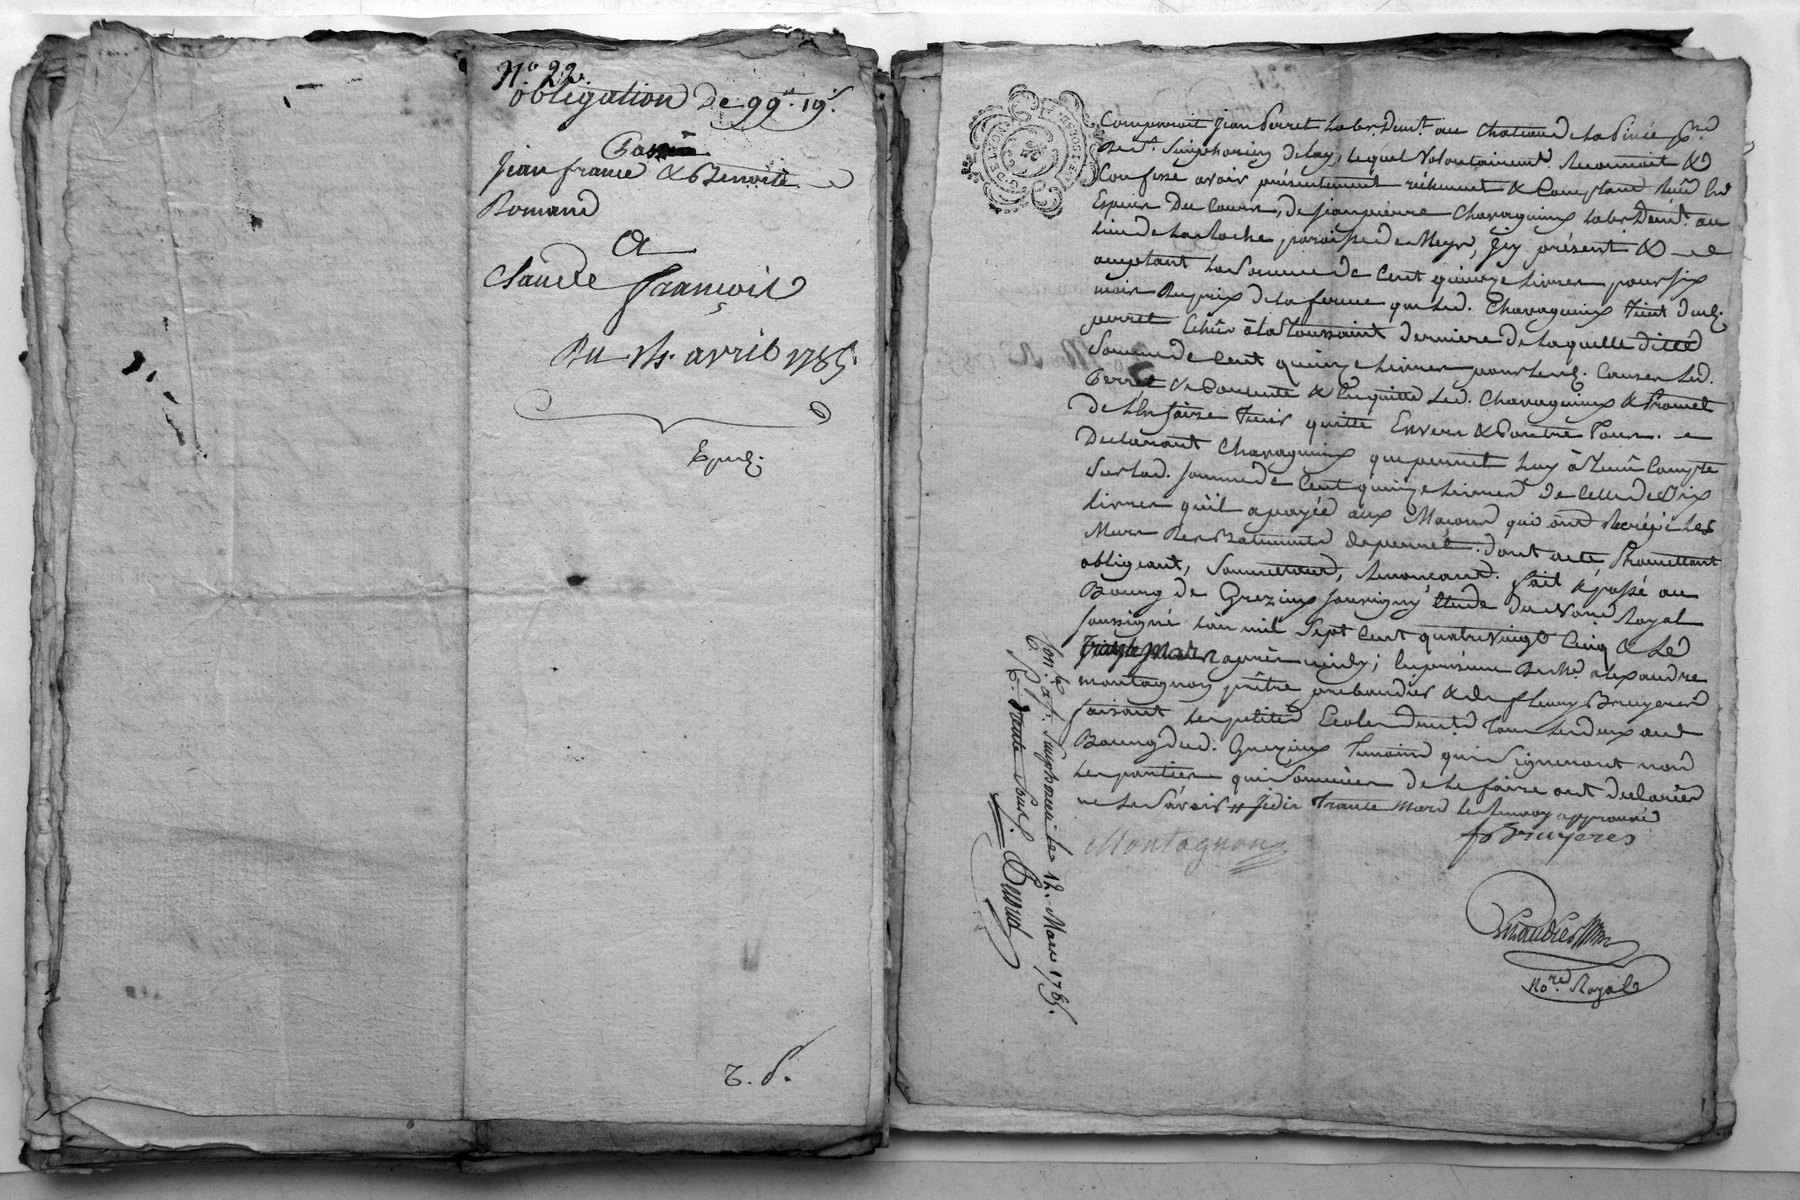 N.o 22.
obligation De 99.lt 19.s
Passée
Jean france & Benoite
Romand
a
Claude François
Du 14. avril 1785.
Exped.
C. S.
G. DE LYON
Comparoit Jean Perret labr. Demt. au chateau de la
De St. Simphorien de Lay, lequel volontairement Reconnoit &
Confesse avoir présentement réelement & Comptant Reçu En
Espèces Du Cours, de jeanpierre Chavagnieux labr. Demt. au
lieu de La Roche paroisse de Neyr, Icy présent &
aceptant la Somme de Cent quinze livres pour six
mois Du prix de la ferme que led. Chavagnieux Tient dud.
perret Echus à la Toussaint derniere de laquelle ditte
Somme de Cent quinze livres pour led. Causes led.
Perret Se Contente & En quitte led. Chavagnieux & Promet
de l'En faire Tenir quitte Envers & Contre Tous.
Declarant Chavagnieux que perret luy à Tenu Compte
Sur lad. Somme de Cent quinze livres de Celle de Dix
livres qu'il a payée aux Maçons qui ont Recrépi les
Murs Des Batiments de perret. dont acte Promettant
obligeant, Soumettant, Renonçant. fait & passé au
Bourg de Grezieux Souvigny étude du No.re Royal
soussigné l'an mil Sept Cent quatre vingt Cinq & Le
Mars après midy; En présence De Me. alexandre
montagnon prêtre prebandier & de fleury Bruyeres
faisant les petites Ecoles demts. Tous les deux aud.
Bourg dud. Grezieux Temoins qui Signeront non
les parties qui Sommées de le faire ont declarées
ne le Sçavoir // Jedis Trante Mars le Renvoy approuvé
Montagnon
f Bruyeres
No.re Royal
Con.lé à St. Simphorien le 12. Mars 1785.
R. trente Sous.